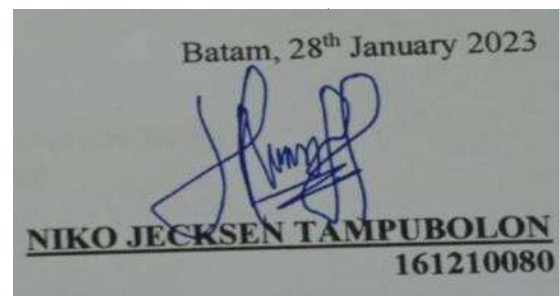 Batam, 28th January 2023
NIKO JECKSEN TAMPUBOLON
161210080